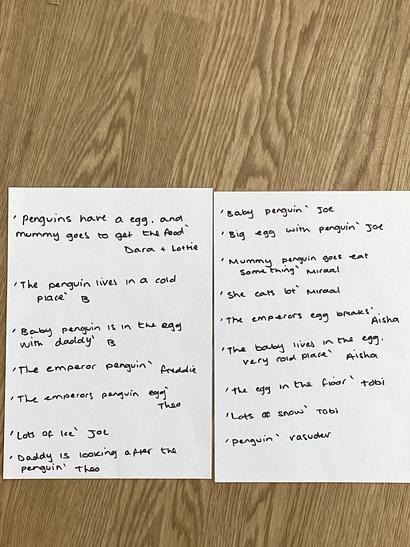 'Penguins have a egg, and
mummy goes to get the food'
Dara + Lottie
'The penguin lives in a cold
place' B
'Baby penguin is in the egg
with daddy' B
'The emperor penguin' Freddie
'The emperors penguin egg'
Theo
'Lots of Ice' Joe
'Daddy is looking after the
penguin' Theo
'Baby penguin' Joe
'Big egg with penguin' Joe
'Mummy penguin goes eat
something' Miraal
'She eats lot' Miraal
'The emperors egg breaks'
Aisha
'The baby lives in the egg.
very cold place' Aisha
'the egg in the floor' Tobi
'Lots of snow' Tobi
'penguin' vasudev